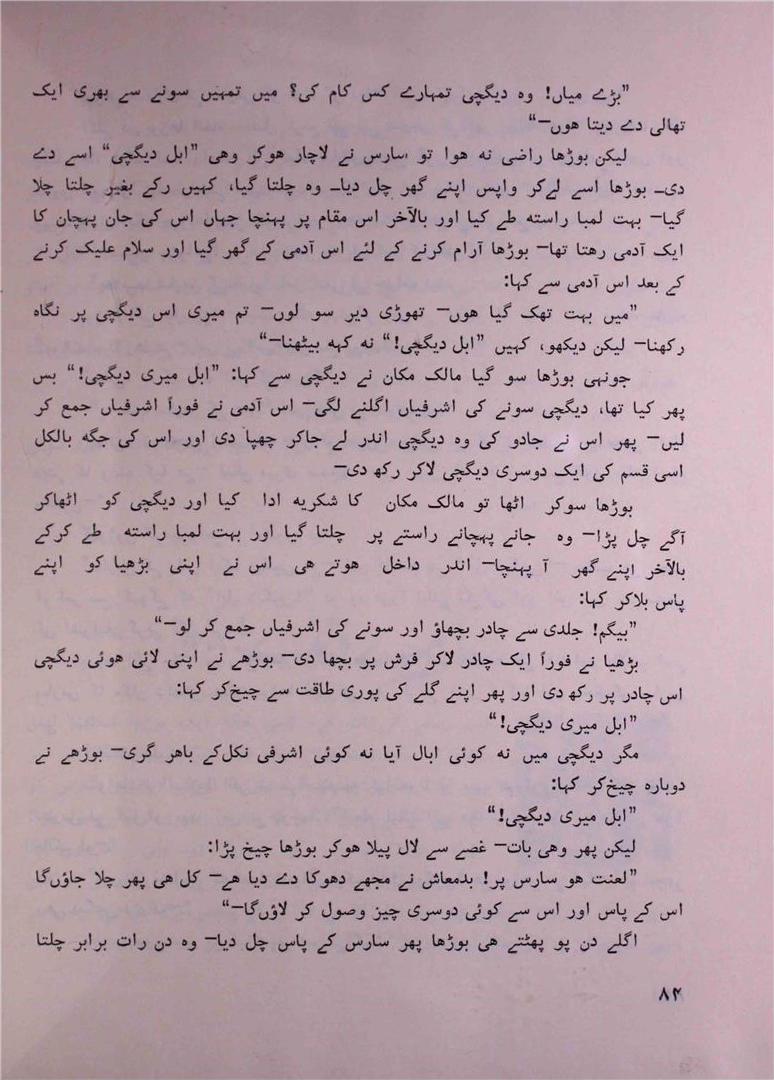 ”بڑے میاں! وہ دیگچی تمہارے کس کام کی؟ میں تمہیں سونے سے بھری ایک
تھالی دے دیتا ھوں—“
لیکن بوڑھا راضی نہ ھوا تو سارس نے لاچار ھوکر وھی ”ابل دیگچی“ اسے دے
دی۔ بوڑھا اسے لےکر واپس اپنے گھر چل دیا۔ وہ چلتا گیا، کہیں رکے بغیر چلتا چلا
گیا— بہت لمبا راستہ طے کیا اور بالآخر اس مقام پر پہنچا جہاں اس کی جان پہچان کا
ایک آدمی رھتا تھا— بوڑھا آرام کرنے کے لئے اس آدمی کے گھر گیا اور سلام علیک کرنے
کے بعد اس آدمی سے کہا:
”میں بہت تھک گیا ھوں— تھوڑی دیر سو لوں— تم میری اس دیگچی پر نگاہ
رکھنا— لیکن دیکھو، کہیں ”ابل دیگچی!“ نہ کہہ بیٹھنا—“
جونہی بوڑھا سو گیا مالک مکان نے دیگچی سے کہا: ”ابل میری دیگچی!“ بس
پھر کیا تھا، دیگچی سونے کی اشرفیاں اگلنے لگی— اس آدمی نے فوراً اشرفیاں جمع کر
لیں— پھر اس نے جادو کی وہ دیگچی اندر لے جاکر چھپا دی اور اس کی جگہ بالکل
اسی قسم کی ایک دوسری دیگچی لاکر رکھ دی—
بوڑھا سوکر اٹھا تو مالک مکان کا شکریہ ادا کیا اور دیگچی کو اٹھاکر
آگے چل پڑا— وہ جانے پہچانے راستے پر چلتا گیا اور بہت لمبا راستہ طے کرکے
بالآخر اپنے گھر آ پہنچا— اندر داخل ھوتے ھی اس نے اپنی بڑھیا کو اپنے
پاس بلاکر کہا:
”بیگم! جلدی سے چادر بچھاؤ اور سونے کی اشرفیاں جمع کر لو—“
بڑھیا نے فوراً ایک چادر لاکر فرش پر بچھا دی— بوڑھے نے اپنی لائی ھوئی دیگچی
اس چادر پر رکھ دی اور پھر اپنے گلے کی پوری طاقت سے چیخ کر کہا:
”ابل میری دیگچی!“
مگر دیگچی میں نہ کوئی ابال آیا نہ کوئی اشرفی نکل کے باھر گری— بوڑھے نے
دوبارہ چیخ کر کہا:
”ابل میری دیگچی!“
لیکن پھر وھی بات— غصے سے لال پیلا ھوکر بوڑھا چیخ پڑا:
”لعنت ھو سارس پر! بدمعاش نے مجھے دھوکا دے دیا ھے— کل ھی پھر چلا جاؤں گا
اس کے پاس اور اس سے کوئی دوسری چیز وصول کر لاؤں گا—“
اگلے دن پو پھٹتے ھی بوڑھا پھر سارس کے پاس چل دیا— وہ دن رات برابر چلتا
۸۲